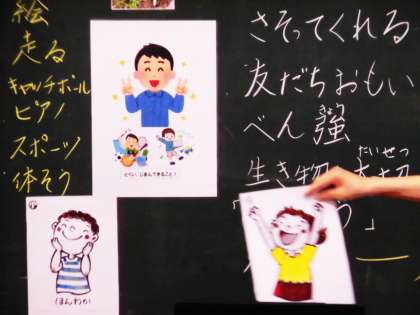 絵
走る
キャッチボール
ピアノ
スポーツ
体そう
とくい、じまんできること!
ほんわか
さそってくれる
友だちおもい
べん強
きょう
生き物
たいせつ